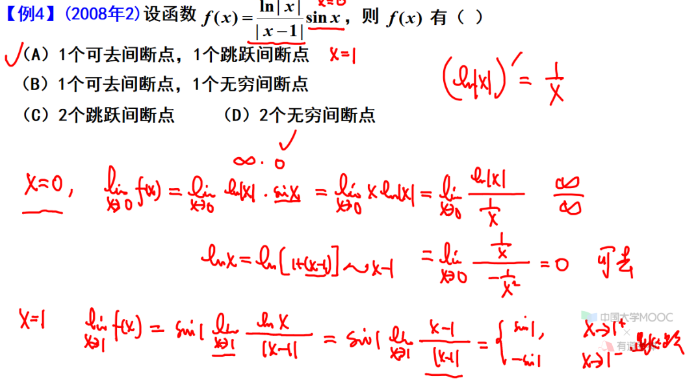 【例4】(2008年2) 设函数 f(x)=ln|x|/|x−1| sin x，则 f(x) 有（ ） x=0
√ (A) 1个可去间断点，1个跳跃间断点 x=1
(B) 1个可去间断点，1个无穷间断点 (ln|x|)′ = 1/x
(C) 2个跳跃间断点 (D) 2个无穷间断点
∞·0 √
x=0, lim x→0 f(x) = lim x→0 ln|x|·sinx = lim x→0 x ln|x| = lim x→0 ln|x|/(1/x) ∞/∞
lnx = ln[1+(x-1)] ~ x-1 = lim x→0 (1/x)/(-1/x²) = 0 可去
x=1 lim x→1 f(x) = sin1 lim x→1 lnx/|x-1| = sin1 lim x→1 (x-1)/|x-1| = { sin1, x→1⁺
-sin1 x→1⁻
中国大学MOOC